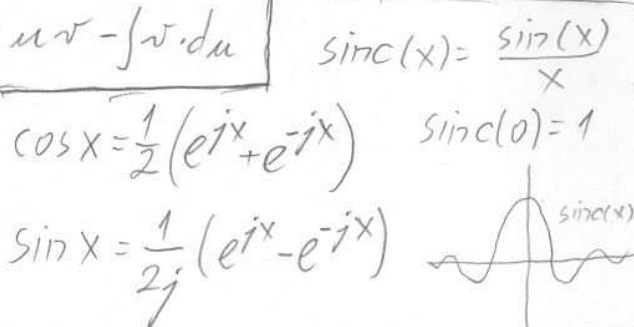 uv - ∫v·du
sinc(x) = sin(x)/x
cos x = 1/2 (e^jx + e^-jx)
sinc(0) = 1
sin x = 1/2j (e^jx - e^-jx)
sinc(x)